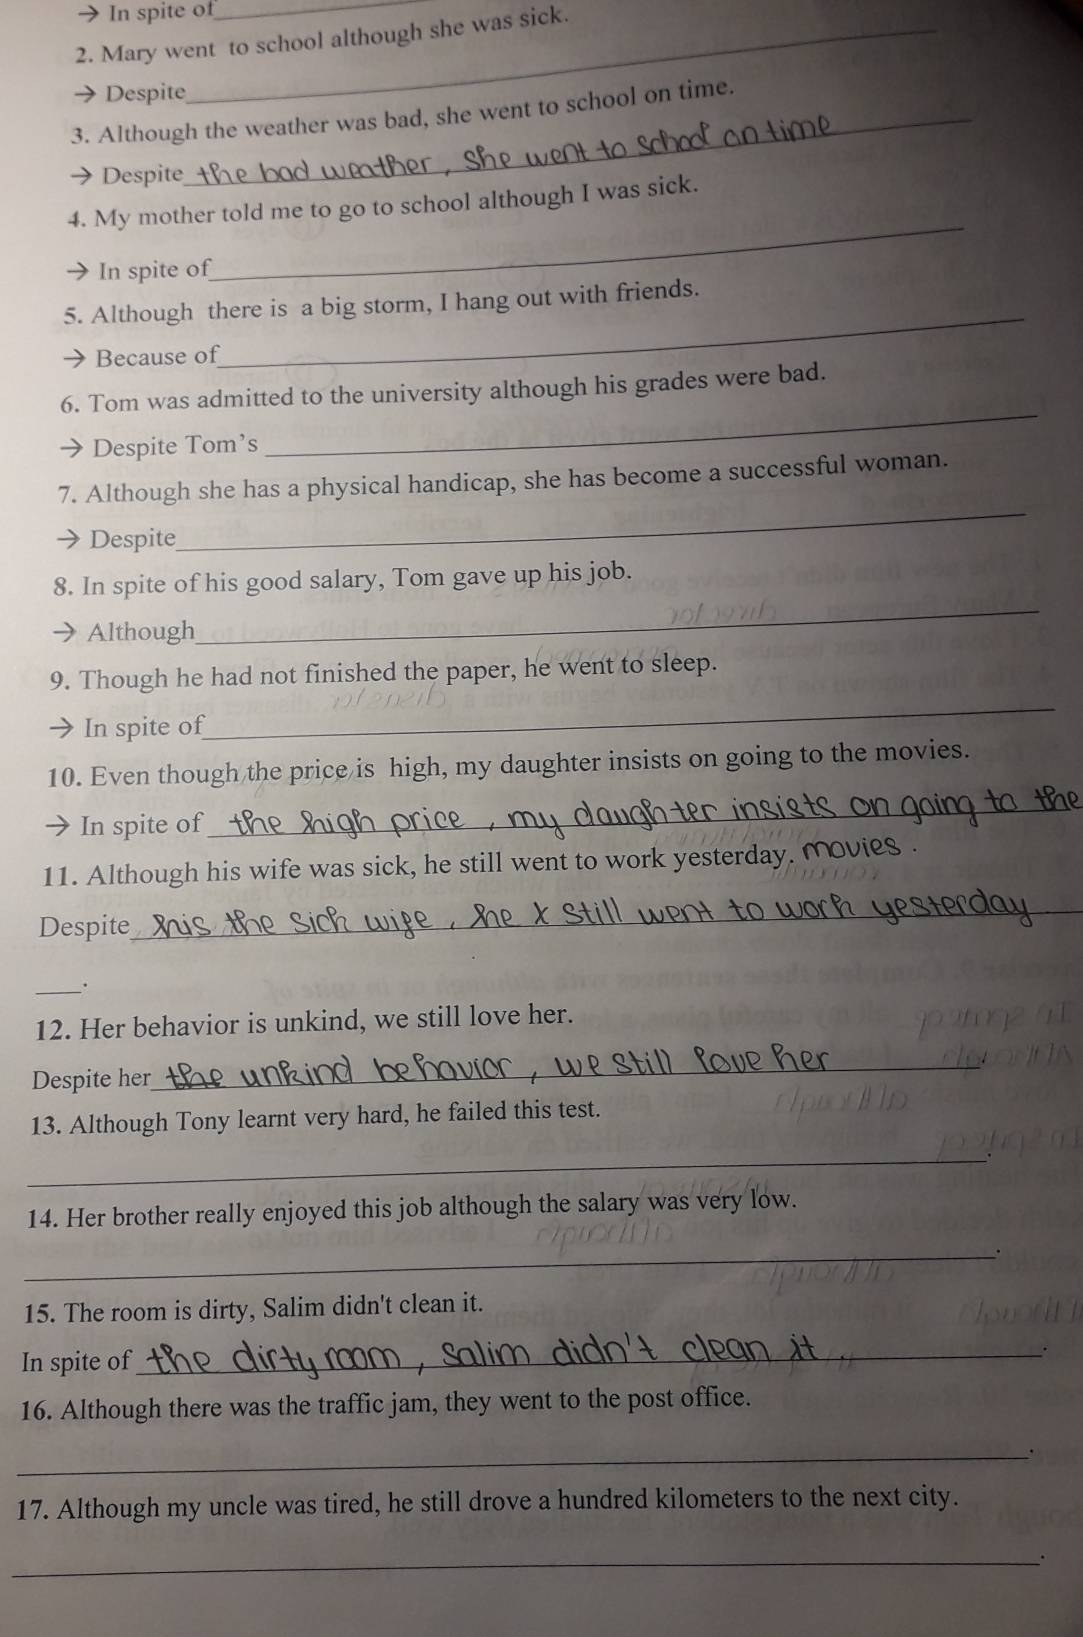 → In spite of
2. Mary went to school although she was sick.
→ Despite
3. Although the weather was bad, she went to school on time.
→ Despite the bad weather, she went to school on time
4. My mother told me to go to school although I was sick.
→ In spite of
5. Although there is a big storm, I hang out with friends.
→ Because of
6. Tom was admitted to the university although his grades were bad.
→ Despite Tom's
7. Although she has a physical handicap, she has become a successful woman.
→ Despite
8. In spite of his good salary, Tom gave up his job.
→ Although
9. Though he had not finished the paper, he went to sleep.
→ In spite of
10. Even though the price is high, my daughter insists on going to the movies.
→ In spite of the high price, my daughter insists on going to the
movies.
11. Although his wife was sick, he still went to work yesterday.
Despite his the sick wife, he x still went to work yesterday
.
12. Her behavior is unkind, we still love her.
Despite her the unkind behavior, we still love her.
13. Although Tony learnt very hard, he failed this test.
.
14. Her brother really enjoyed this job although the salary was very low.
.
15. The room is dirty, Salim didn't clean it.
In spite of the dirty room, Salim didn't clean it.
16. Although there was the traffic jam, they went to the post office.
.
17. Although my uncle was tired, he still drove a hundred kilometers to the next city.
.